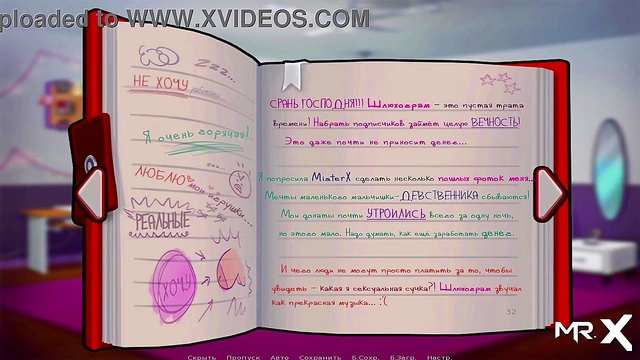 ploaded to WWW.XVIDEOS.COM
zzz...
НЕ ХОЧУ работать
Я очень горячая!
ЛЮБЛЮ мои игрушки...
РЕАЛЬНЫЕ
ХОЧУ
СРАНЬ ГОСПОДНЯ!!! Шлюхограм – это пустая трата
времени! Набрать подписчиков займёт целую ВЕЧНОСТЬ!
Это даже почти не приносит денег...
Я попросила MisterX сделать несколько пошлых фоток меня..
Мечты маленького мальчишки-ДЕВСТВЕННИКА сбываются!
Мои донаты почти УТРОИЛИСЬ всего за одну ночь,
но этого мало. Надо думать, как ещё заработать денег.
И чего люди не могут просто платить за то, чтобы
увидеть – какая я сексуальная сучка?! Шлюхограм звучал
как прекрасная музыка... :'(
32
MR. X
Скрыть Пропуск Авто Сохранить Б.Сохр. Б.Загр. Настр.